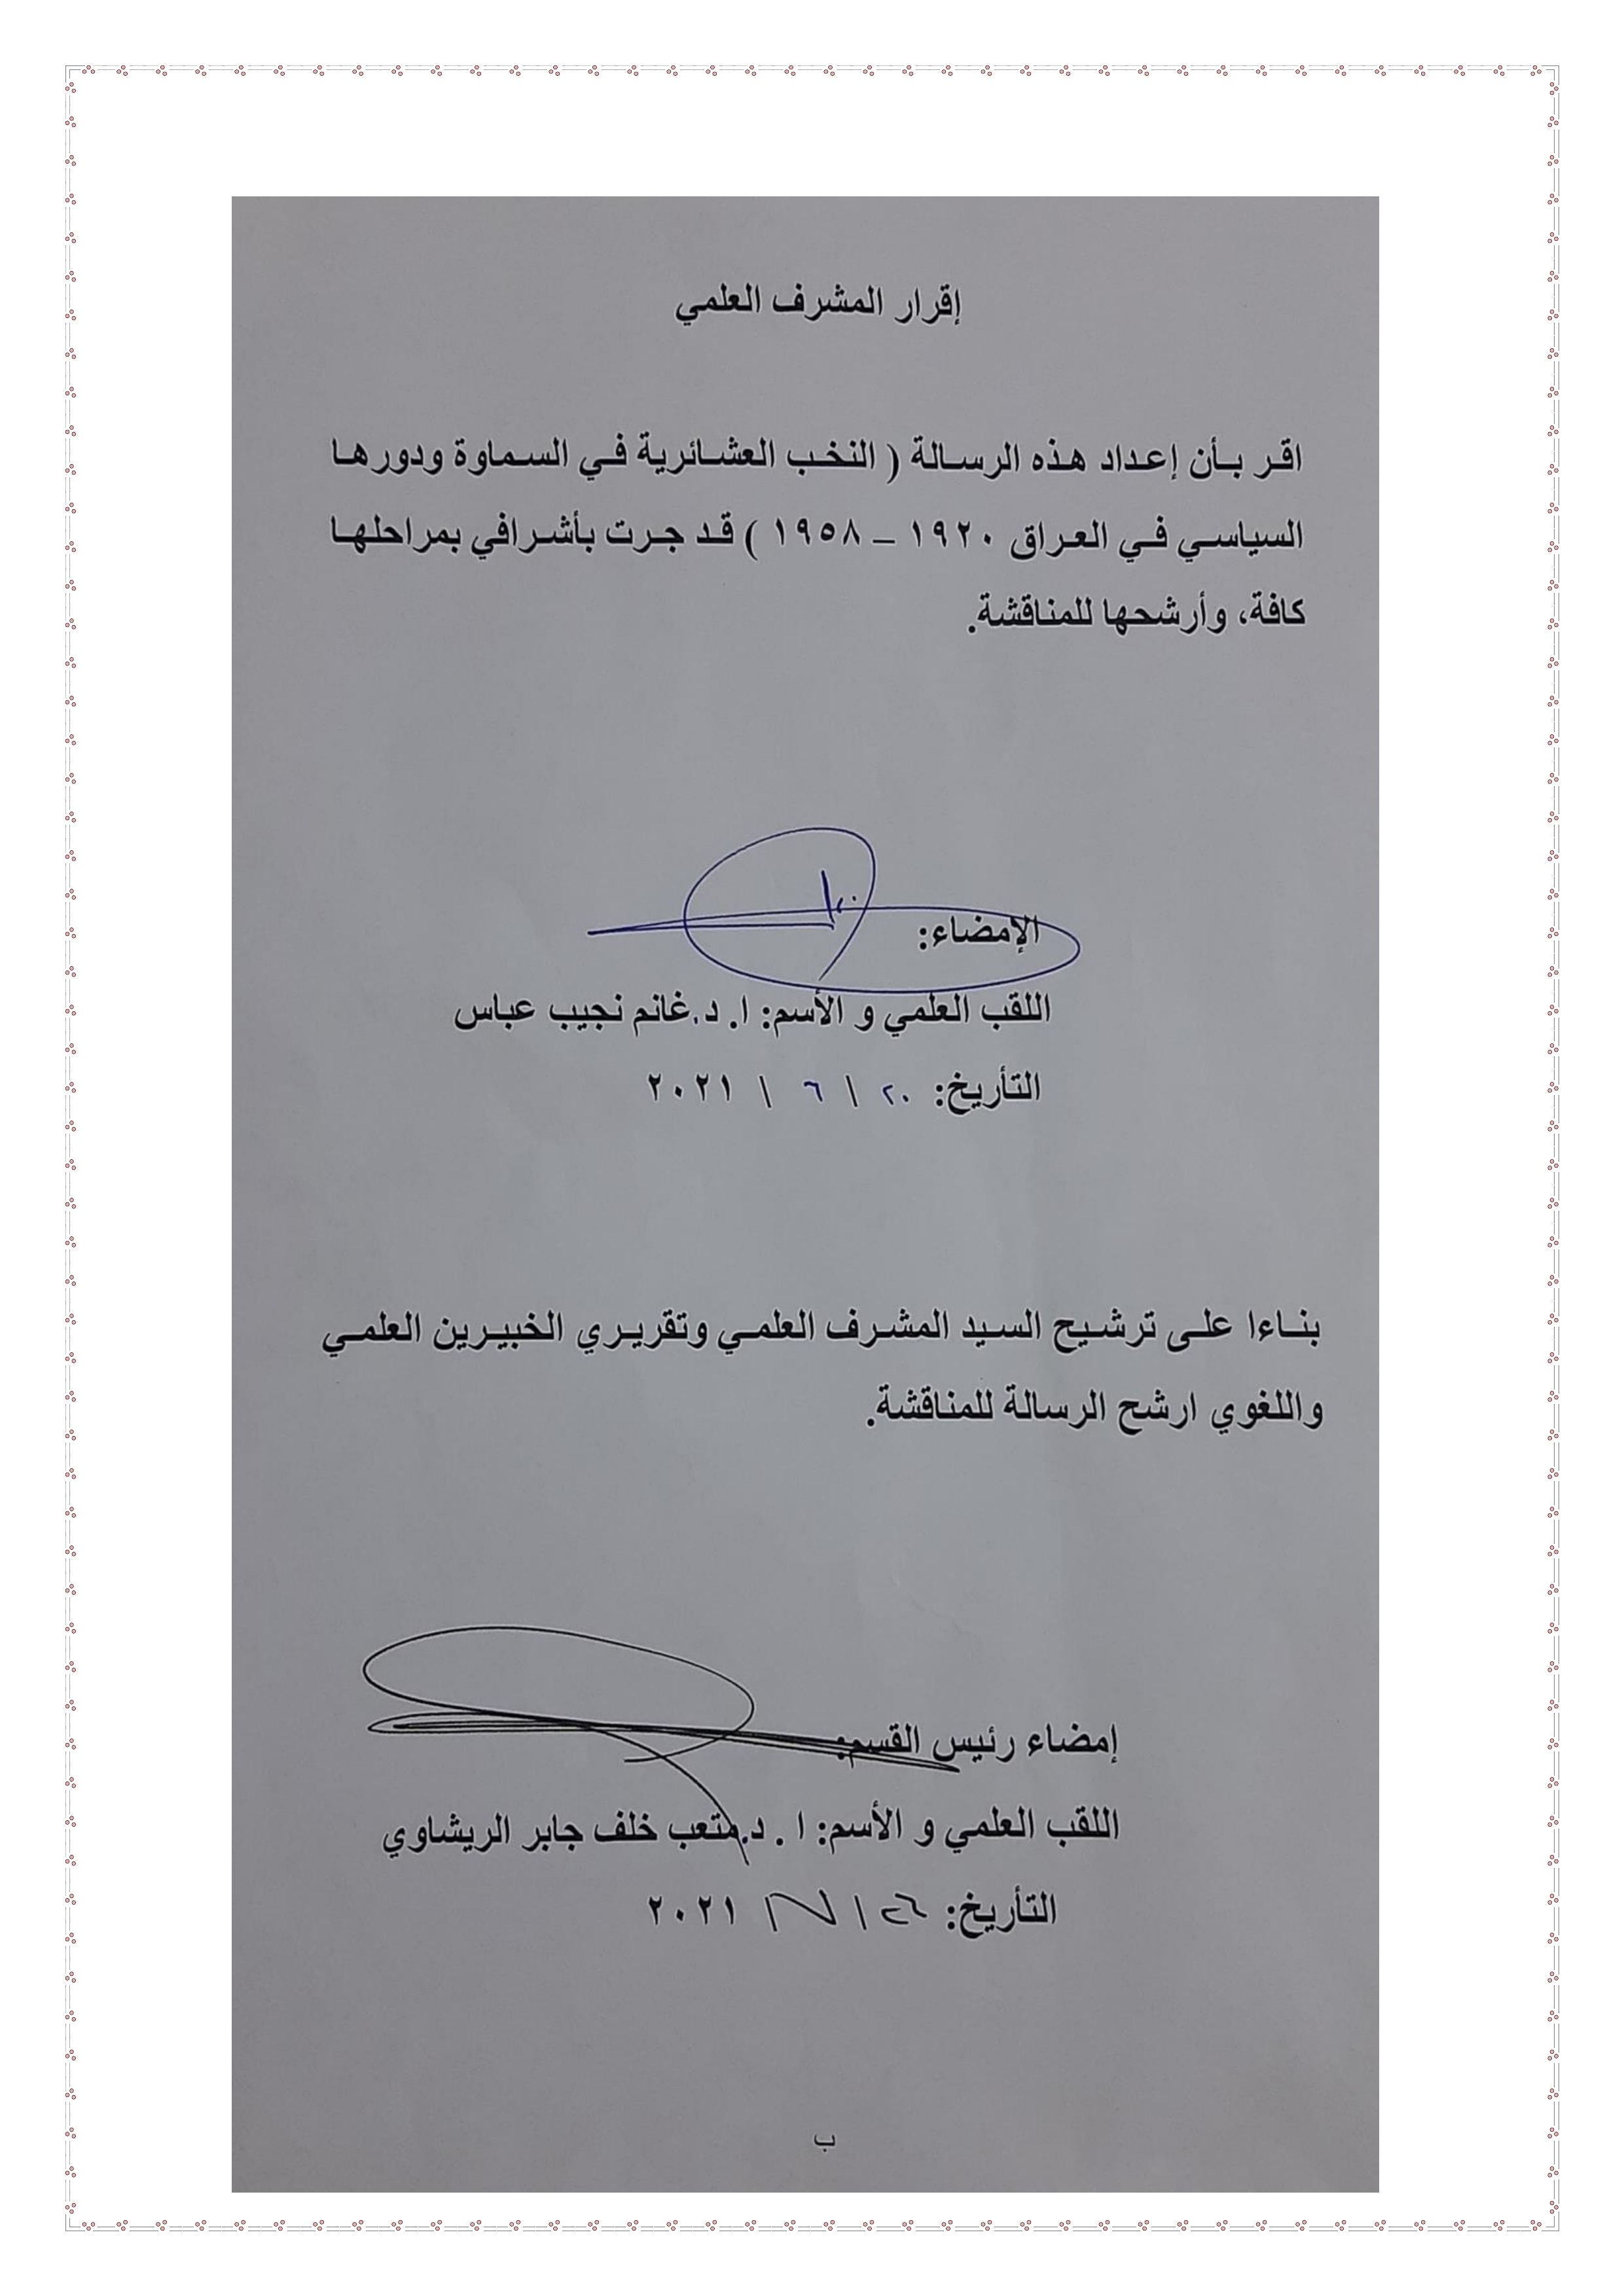 إقرار المشرف العلمي
اقر بأن إعداد هذه الرسالة ( النخب العشائرية في السماوة ودورها
السياسي في العراق ١٩٢٠ – ١٩٥٨ ) قد جرت بأشرافي بمراحلها
كافة، وأرشحها للمناقشة.
الإمضاء:
اللقب العلمي و الأسم: ا. د.غانم نجيب عباس
التأريخ: ٢٠ \ ٦ \ ٢٠٢١
بناءا على ترشيح السيد المشرف العلمي وتقريري الخبيرين العلمي
واللغوي ارشح الرسالة للمناقشة.
إمضاء رئيس القسم:
اللقب العلمي و الأسم: ا . د.متعب خلف جابر الريشاوي
التأريخ: \ \ ٢٠٢١
ب